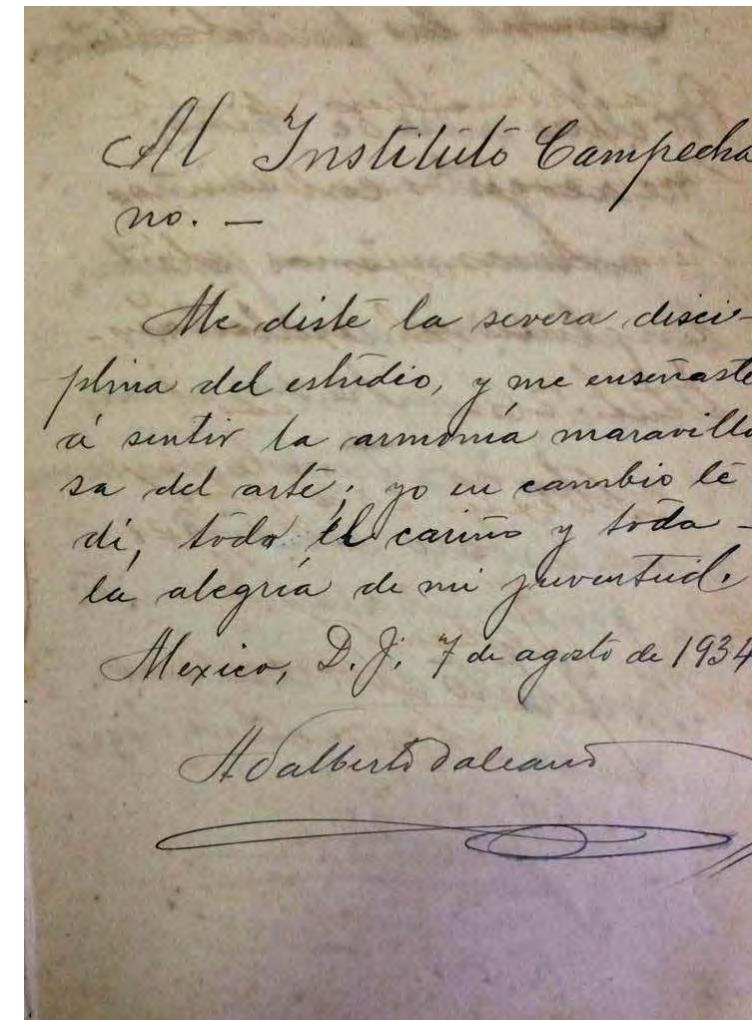 Al Instituto Campecha
no. —
Me diste la severa disci-
plina del estudio, y me enseñaste
á sentir la armonía maravillo
sa del arte; yo en cambio te
dí, todo el cariño y toda -
la alegría de mi juventud.
Mexico, D. F. 7 de agosto de 1934
Adalberto Galeano